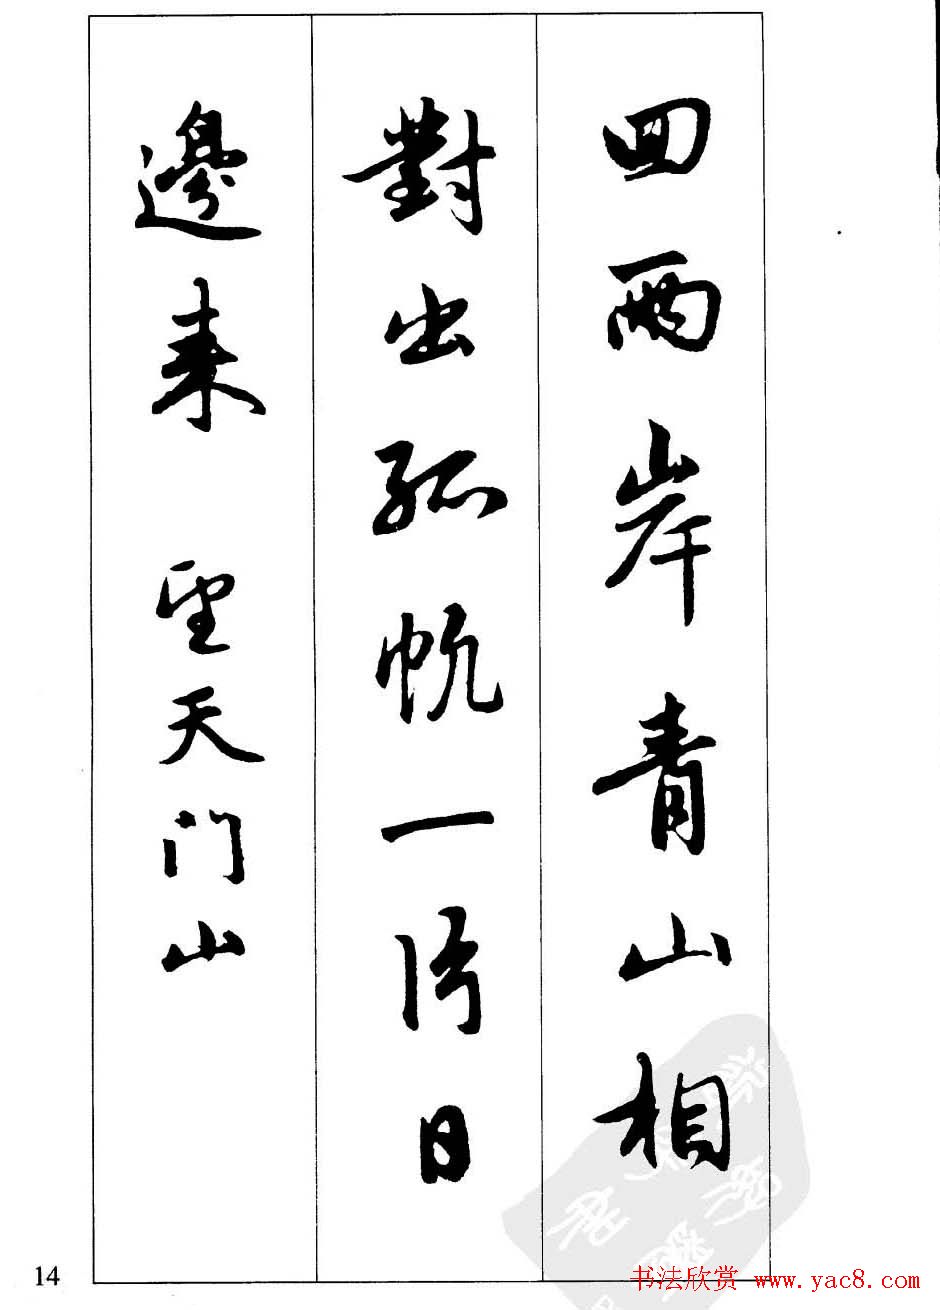 回兩岸青山相
對出孤帆一片日
邊来 望天门山
14
书法欣赏 www.yac8.com